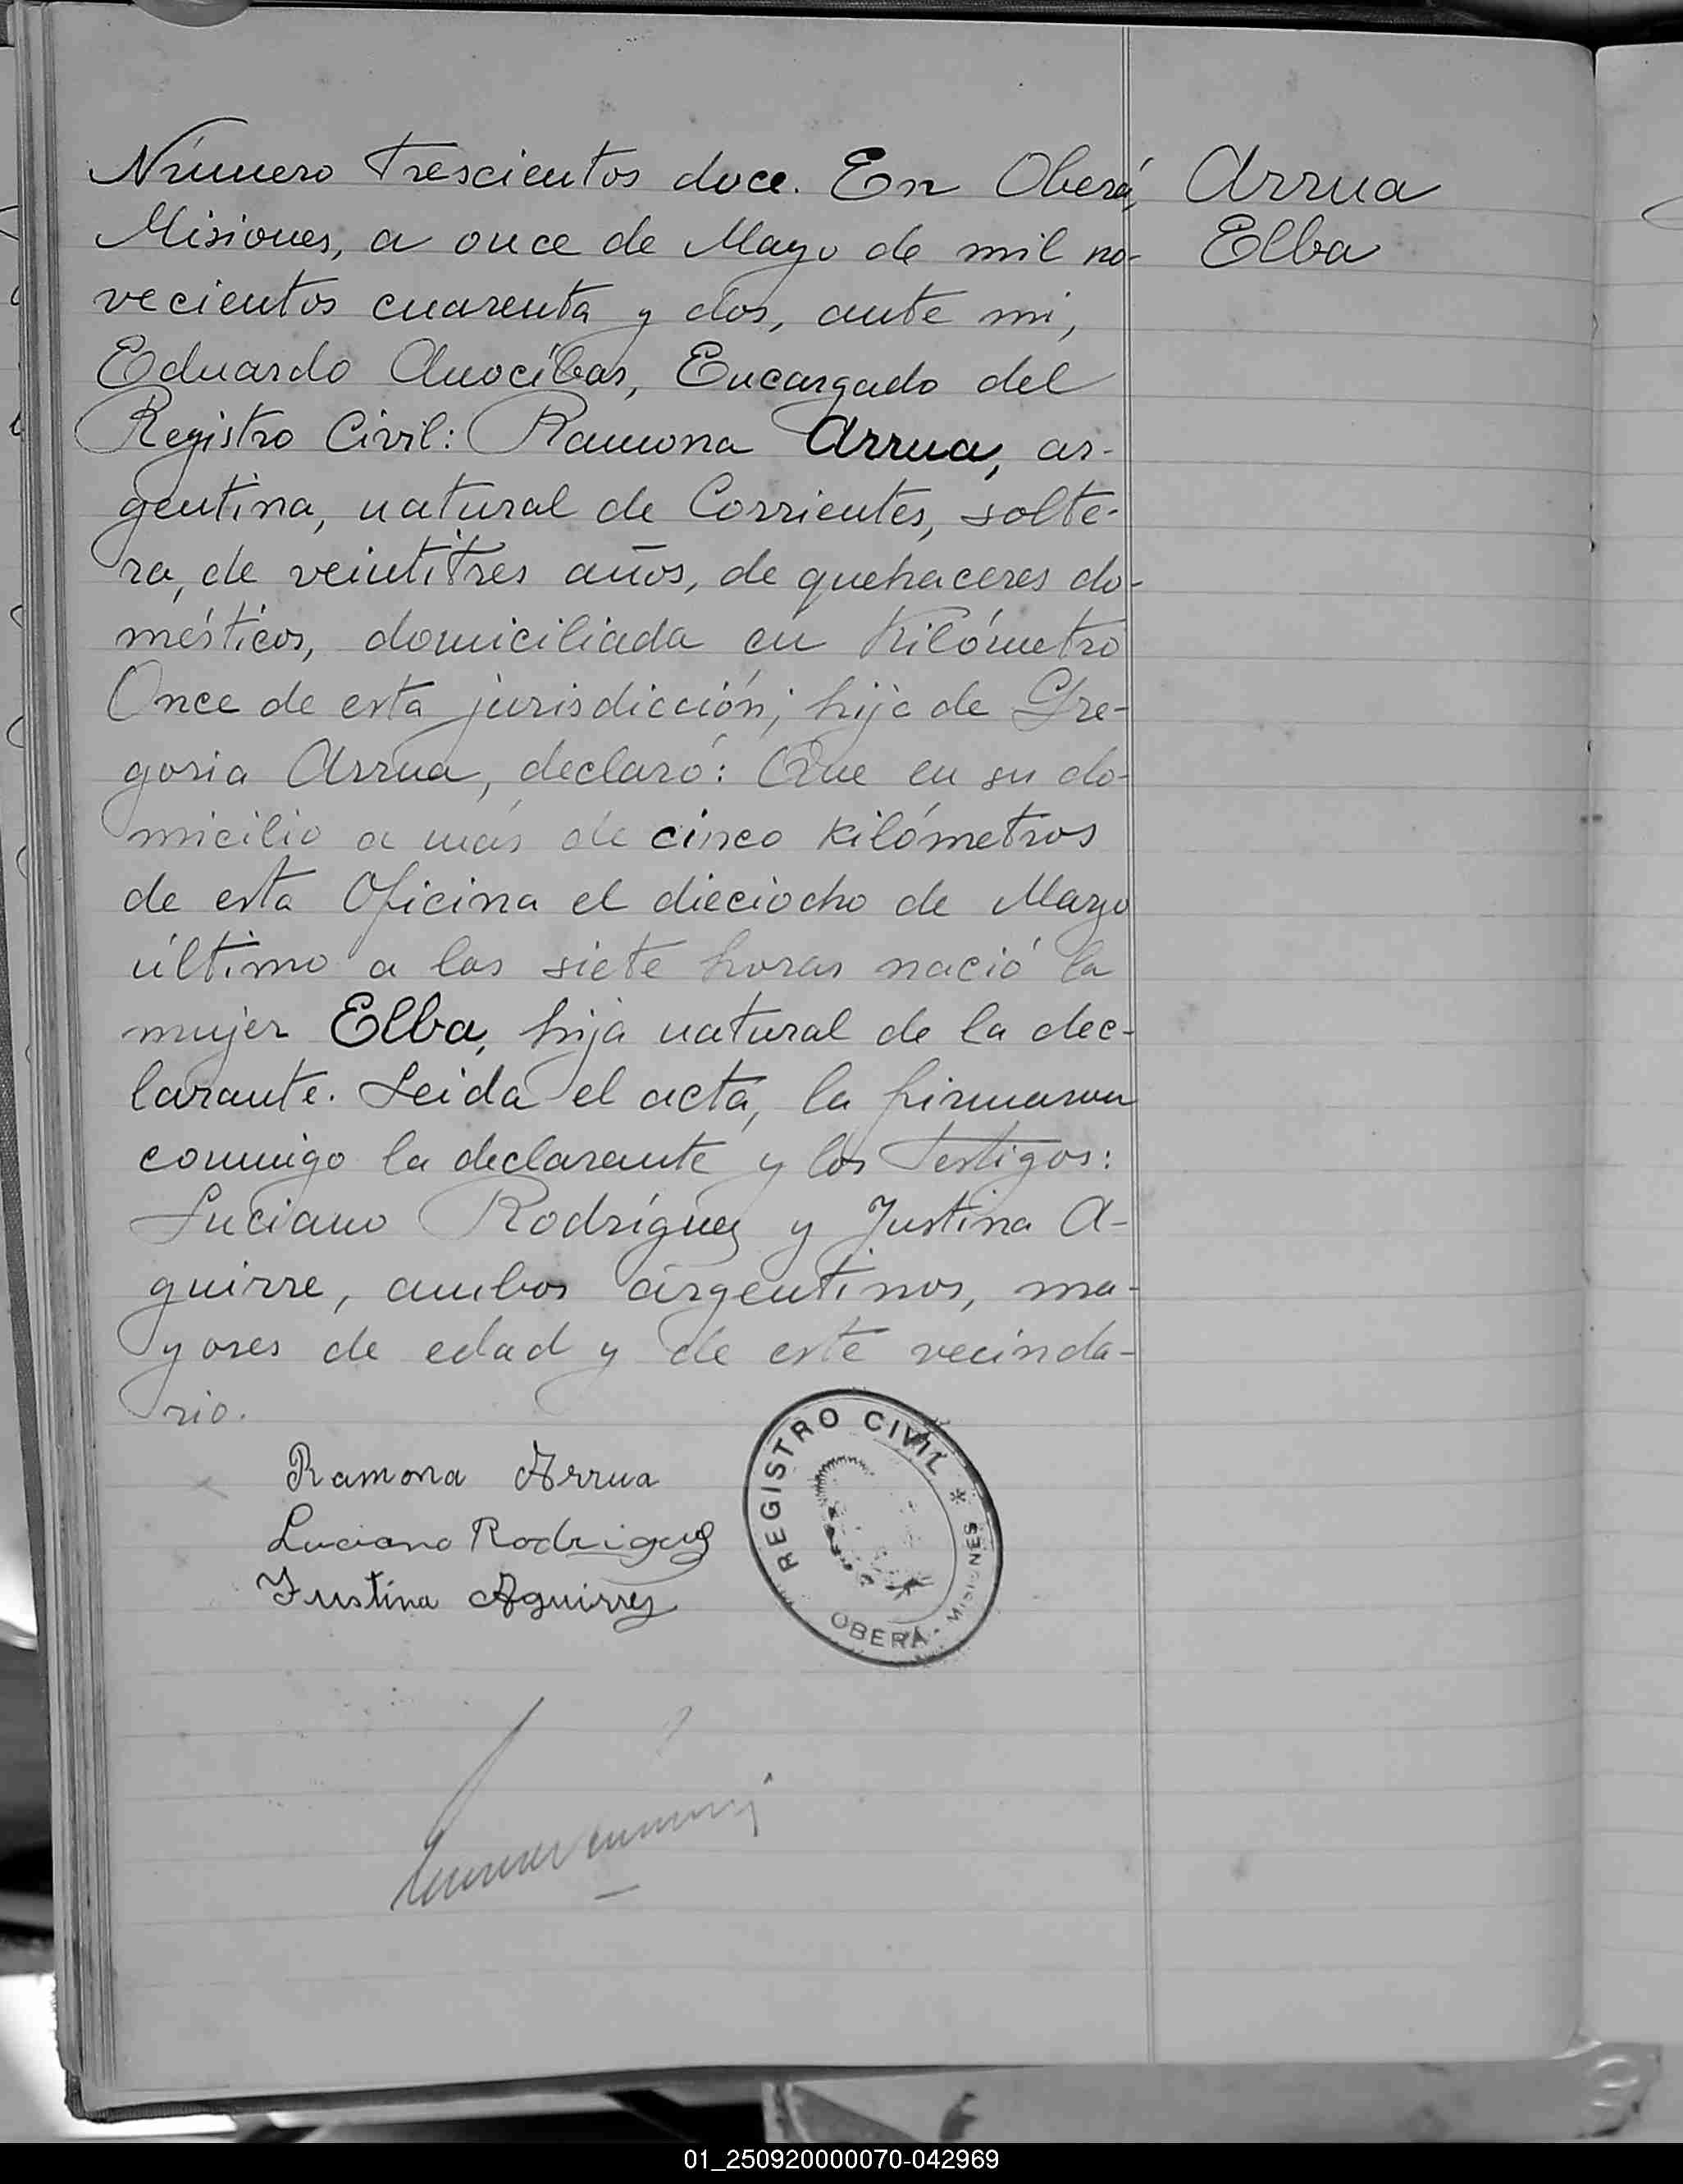 Número trescientos doce. En Oberá,
Misiones, a once de Mayo de mil no-
vecientos cuarenta y dos, ante mi,
Eduardo Anocíbar, Encargado del
Registro Civil: Ramona Arrua, ar-
gentina, natural de Corrientes, solte-
ra, de veintitres años, de quehaceres do-
mésticos, domiciliada en Kilómetro
Once de esta jurisdicción; hija de Gre-
goria Arrua, declaró: Que en su do-
micilio a más de cinco kilómetros
de esta Oficina el dieciocho de
último a las siete horas nació la
mujer Elba, hija natural de la dec-
larante. Leida el acta, la firmaron
conmigo la declarante y los testigos:
Luciano Rodríguez y Justina A-
guirre, ambos argentinos, ma-
yores de edad y de este vecinda-
rio.
Arrua
Elba
Ramona Arrua
Luciano Rodriguez
Justina Aguirrez
REGISTRO CIVIL *
OBERÁ - MISIONES
01_250920000070-042969